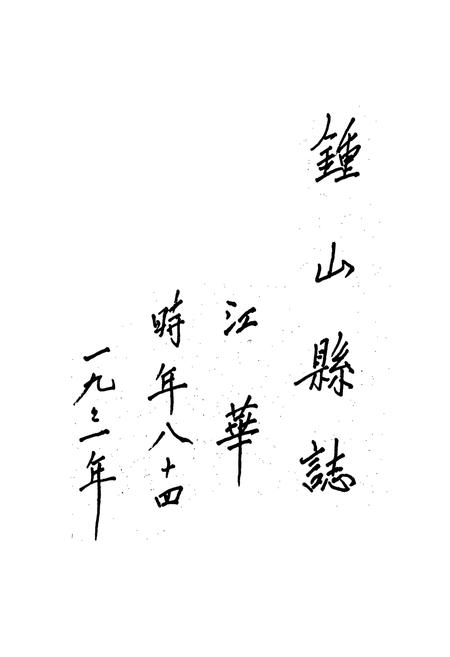 鍾山縣誌
江華
時年八十四
一九々一年